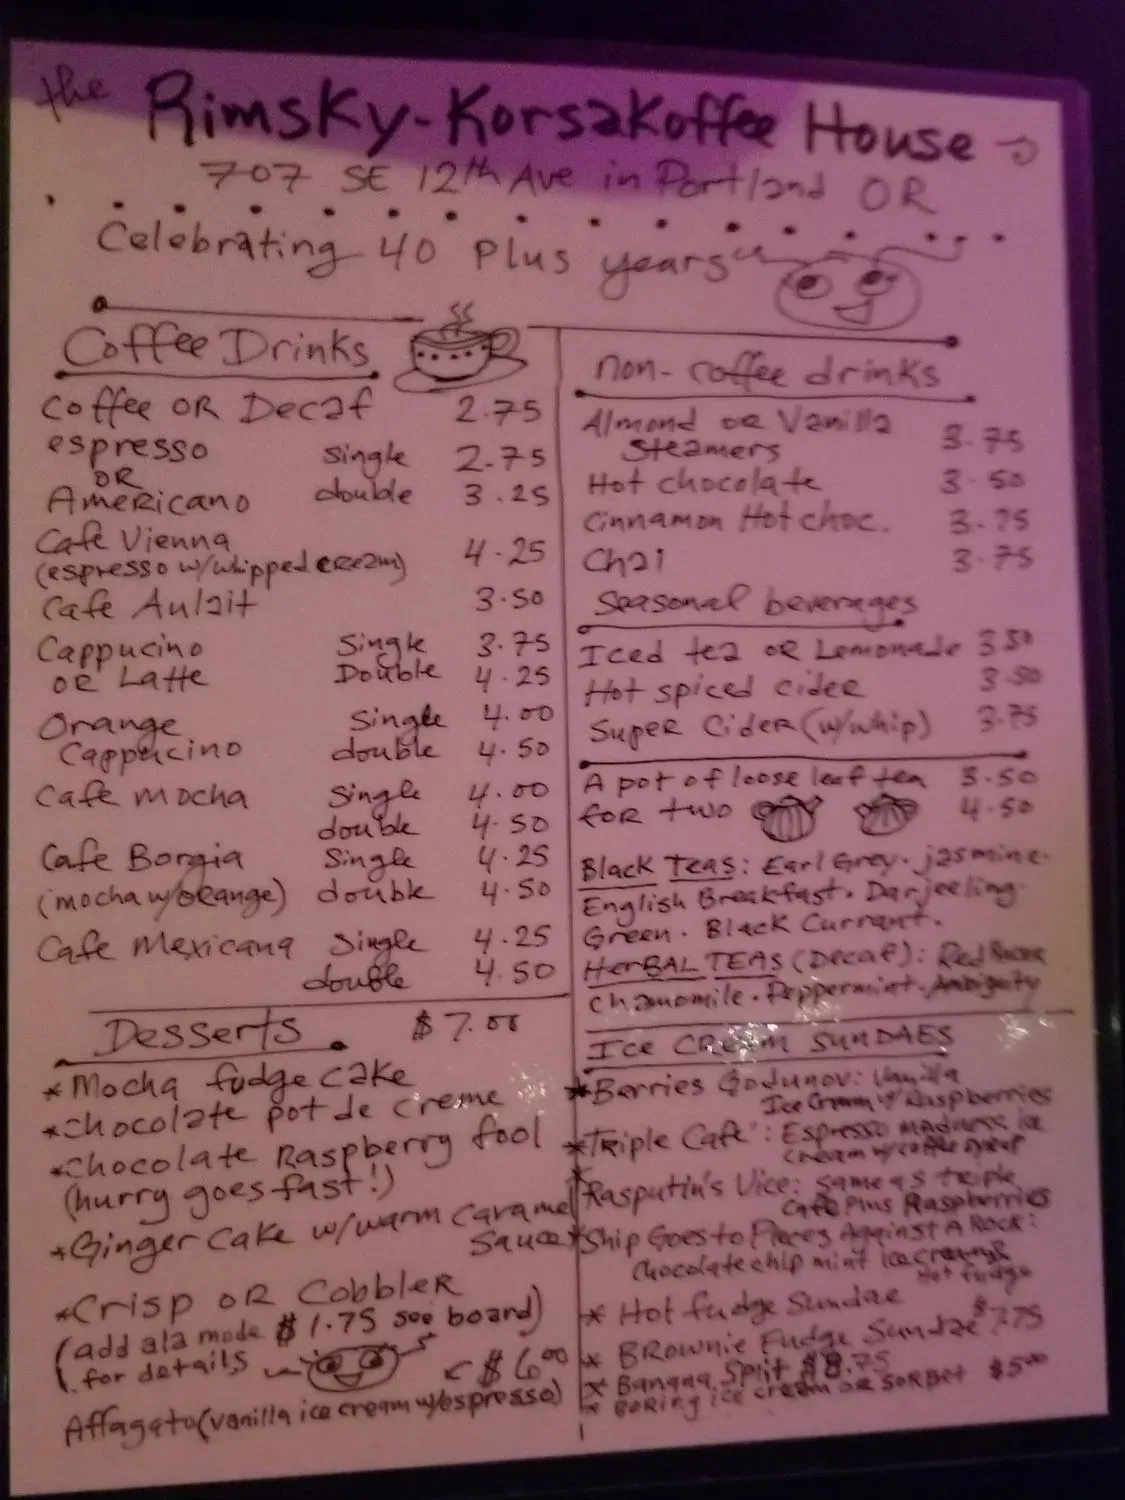 the Rimsky-Korsakoffee House
707 SE 12th Ave in Portland OR
Celebrating 40 Plus years
Coffee Drinks
Coffee OR Decaf 2.75
espresso single 2.75
OR
Americano double 3.25
Cafe Vienna
(espresso w/whipped cream) 4.25
Cafe Aulait 3.50
Cappucino Single 3.75
OR Latte Double 4.25
Orange Single 4.00
Cappucino double 4.50
Cafe mocha Single 4.00
double 4.50
Cafe Borgia Single 4.25
(mocha w/orange) double 4.50
Cafe Mexicana Single 4.25
double 4.50
Desserts $7.00
*Mocha fudge cake
*Chocolate pot de creme
*Chocolate Raspberry fool
(hurry goes fast!)
*Ginger cake w/warm caramel
sauce
*Crisp OR Cobbler
(add ala mode $1.75 see board)
for details
< $6.00
Affagato (vanilla ice cream w/espresso)
non-coffee drinks
Almond OR Vanilla
Steamers 3.75
Hot chocolate 3.50
Cinnamon Hot choc. 3.75
Chai 3.75
Seasonal beverages
Iced tea OR Lemonade 3.50
Hot spiced cider 3.50
Super Cider (w/whip) 3.75
A pot of loose leaf tea 3.50
for two 4.50
Black Teas: Earl Grey. jasmine.
English Breakfast. Darjeeling.
Green. Black Currant.
HerBAL TEAS (Decaf): Red
Chamomile. Peppermint. Ambiguity
Ice Cream Sundaes
*Berries Godunov: Vanilla
Ice Cream w/ Raspberries
*Triple Cafe: Espresso madness ice
cream w/coffee syrup
*Rasputin's Vice: same as triple
cafe Plus Raspberries
*Ship Goes to Pieces Against A Rock:
Chocolate chip mint ice cream &
Hot fudge
* Hot fudge Sundae
* Brownie Fudge Sundae $7.75
* Banana Split $8.75
* Boring ice cream or sorbet $5.00